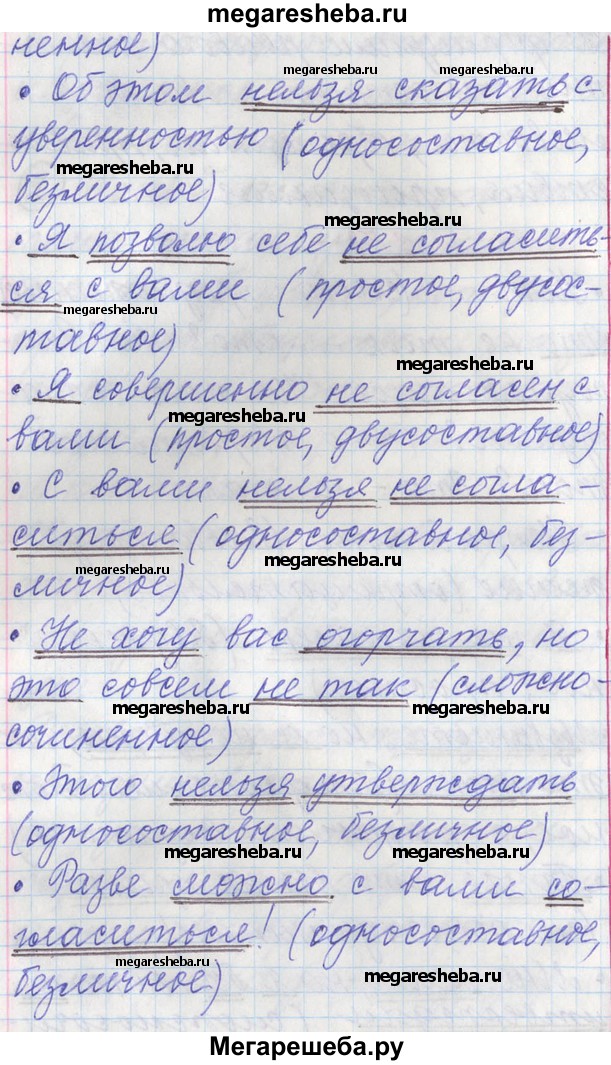 megaresheba.ru
ненное)
megaresheba.ru megaresheba.ru
• Об этом нельзя сказать с
уверенностью (односоставное,
megaresheba.ru megaresheba.ru
безличное)
• Я позволю себе не согласить-
megaresheba.ru
ся с вами (простое, двусос-
megaresheba.ru
тавное)
megaresheba.ru
• Я совершенно не согласен с
megaresheba.ru
вами (простое, двусоставное)
• С вами нельзя не согла-
ситься (односоставное, без-
megaresheba.ru megaresheba.ru
личное)
• Не хочу вас огорчать, но
это совсем не так (сложно-
megaresheba.ru megaresheba.ru
сочиненное)
• Этого нельзя утверждать
(односоставное, безличное)
megaresheba.ru megaresheba.ru
• Разве можно с вами со-
гласиться! (односоставное,
megaresheba.ru megaresheba.ru
безличное)
Мегарешеба.ру